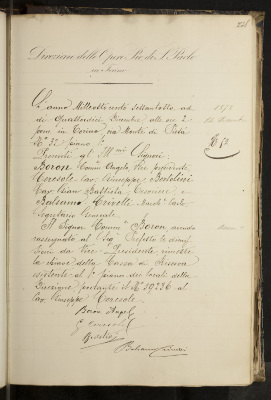 221
Direzione delle Opere Pie di S. Paolo
in Torino
L'anno Milleottocento settantotto, ad-
di Quattordici, Dicembre, alle ore 2
pom in Torino, via Monte di Pietà
N° 32 piano 1°
Presenti gli Ill.mi Signori
Baron Comm. Angelo, Vice Presidente,
Ceresole Cav. Giuseppe, Bertolini
Cav. Gian Battista, Economi e
Balsamo Crivelli March. Carlo
Segretario Generale
Il Signor Comm. Baron avendo
rassegnato al Sig. Prefetto le dimis-
sioni da Vice Presidente rimette
la chiave della Cassa di riserva
esistente al 1° piano dei locali della
Direzione portante il N° 29736 al
Cav. Giuseppe Ceresole.
1878
14 Dicembre
Baron Angelo
G. Ceresole
Balsamo Crivelli